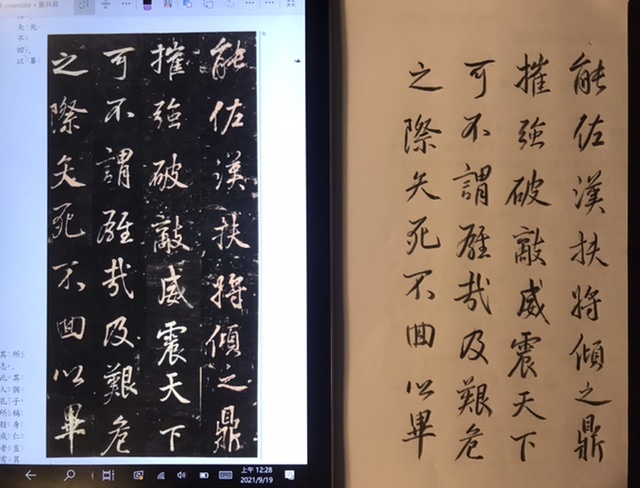 能佐漢扶將傾之鼎
摧強破敵威震天下
可不謂雄哉及艱危
之際矢死不回以畢
能佐漢扶將傾之鼎
摧強破敵威震天下
可不謂雄哉及艱危
之際矢死不回以畢
上午 12:28
2021/9/19